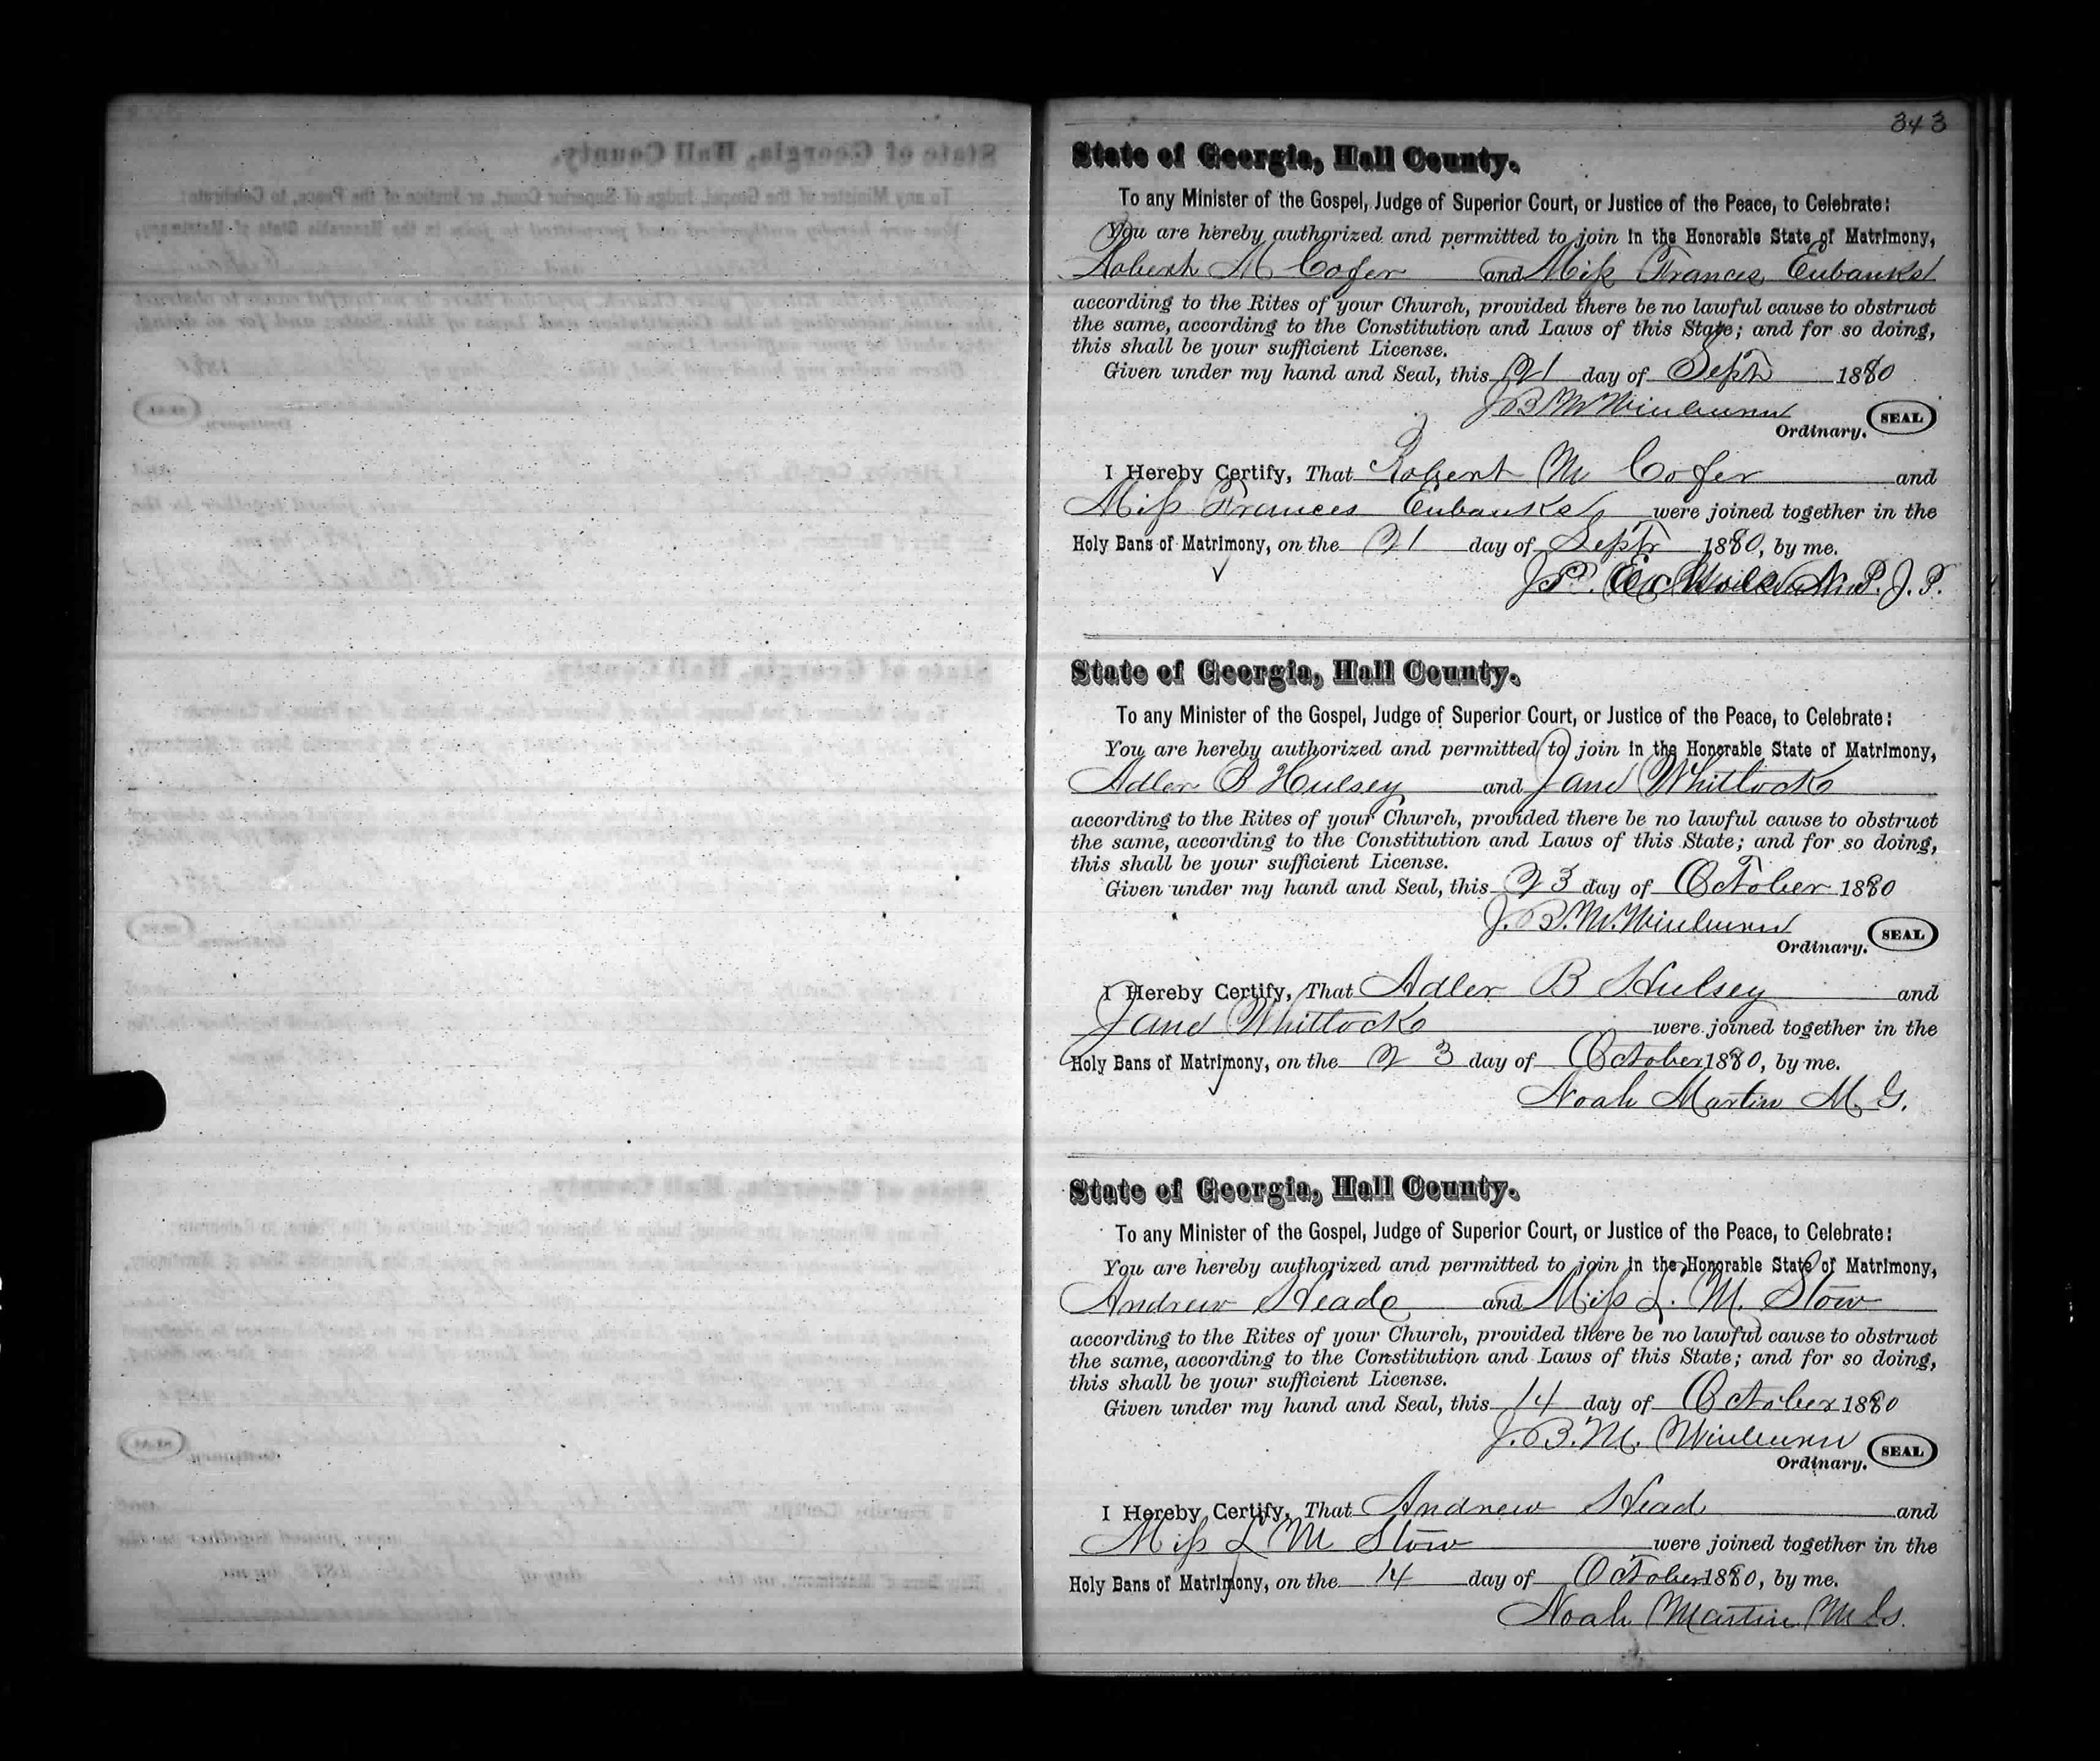 343
State of Georgia, Hall County.
To any Minister of the Gospel, Judge of Superior Court, or Justice of the Peace, to Celebrate:
You are hereby authorized and permitted to join in the Honorable State of Matrimony,
Robert M Cofer and Miss Frances Eubanks
according to the Rites of your Church, provided there be no lawful cause to obstruct
the same, according to the Constitution and Laws of this State; and for so doing,
this shall be your sufficient License.
Given under my hand and Seal, this 21 day of Sept 1880
J B M Winburn SEAL
Ordinary.
I Hereby Certify, That Robert M Cofer and
Miss Frances Eubanks were joined together in the
Holy Bans of Matrimony, on the 21 day of Sept 1880, by me.
J. P.
State of Georgia, Hall County.
To any Minister of the Gospel, Judge of Superior Court, or Justice of the Peace, to Celebrate:
You are hereby authorized and permitted to join in the Honorable State of Matrimony,
Adler B Hulsey and Jane Whitlock
according to the Rites of your Church, provided there be no lawful cause to obstruct
the same, according to the Constitution and Laws of this State; and for so doing,
this shall be your sufficient License.
Given under my hand and Seal, this 23 day of October 1880
J. B. M. Winburn SEAL
Ordinary.
I Hereby Certify, That Adler B Hulsey and
Jane Whitlock were joined together in the
Holy Bans of Matrimony, on the 23 day of October 1880, by me.
Noah Martin M. G.
State of Georgia, Hall County.
To any Minister of the Gospel, Judge of Superior Court, or Justice of the Peace, to Celebrate:
You are hereby authorized and permitted to join in the Honorable State of Matrimony,
Andrew Heade and Miss L. M. Stow
according to the Rites of your Church, provided there be no lawful cause to obstruct
the same, according to the Constitution and Laws of this State; and for so doing,
this shall be your sufficient License.
Given under my hand and Seal, this 14 day of October 1880
J. B. M. Winburn SEAL
Ordinary.
I Hereby Certify, That Andrew Head and
Miss L M Stow were joined together in the
Holy Bans of Matrimony, on the 14 day of October 1880, by me.
Noah Martin M G.